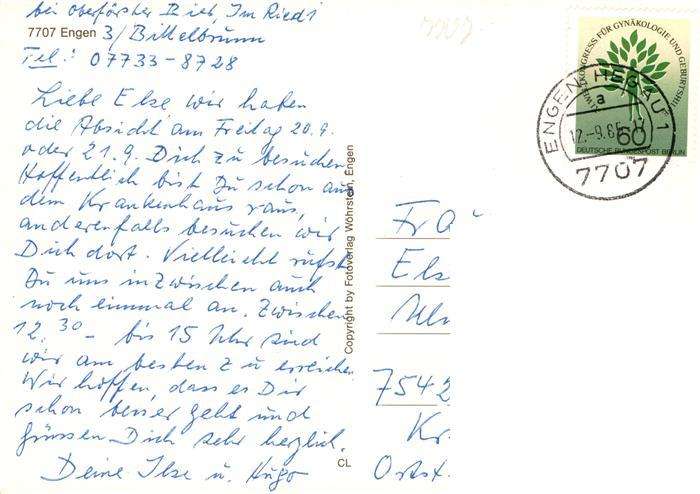 bei Oberförster Rieb, Im Ried 1
7707 Engen 3/Bittelbrunn
Tel: 07733-8728
Liebe Else wir haben
die Absicht am Freitag 20.9.
oder 21.9. Dich zu besuchen
Hoffentlich bist Du schon aus
dem Krankenhaus raus,
anderenfalls besuchen wir
Dich dort. Vielleicht rufst
Du uns inzwischen auch
noch einmal an. Zwischen
12.30 - bis 15 Uhr sind
wir am besten zu erreichen
Wir hoffen, dass es Dir
schon besser geht und
grüssen Dich sehr herzlich.
Deine Ilse u. Hugo
CL
Copyright by Fotoverlag Wöhrstein, Engen
WELTKONGRESS FÜR GYNÄKOLOGIE UND GEBURTSHILFE
60
DEUTSCHE BUNDESPOST BERLIN
ENGEN, HEGAU 1
a
12.-9.85-17
7707
Fr
Els
7542
Kr.
Ortst.